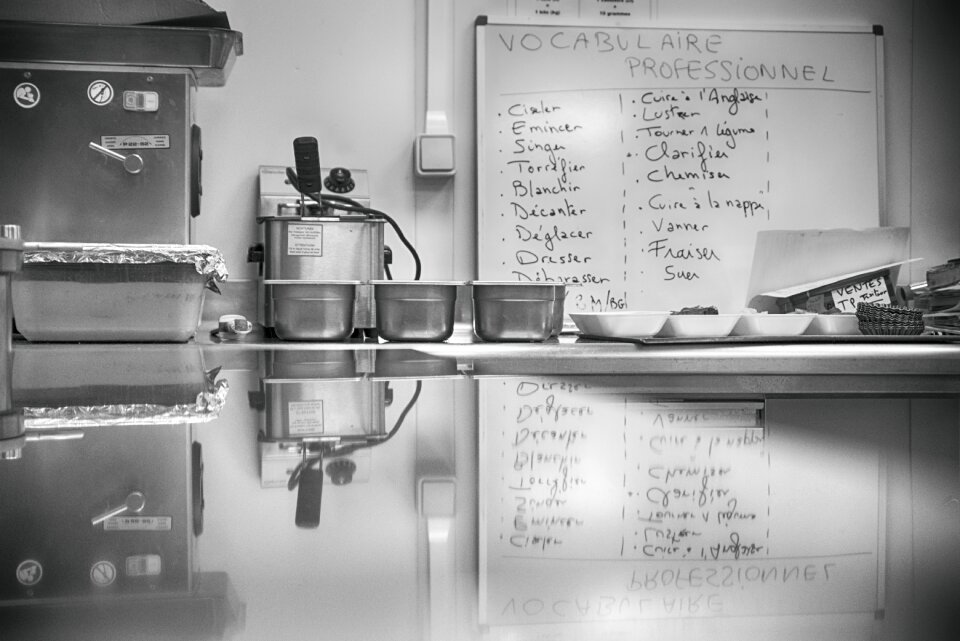 1 kilo (kg)
10 grammes
VOCABULAIRE
PROFESSIONNEL
. Ciseler
. Emincer
. Singer
. Torréfier
. Blanchir
. Décanter
. Déglacer
. Dresser
. Débarasser
. Cuire à l'Anglaise
. Lustrer
. Tourner 1 légume
. Clarifier
. Chemiser
. Cuire à la nappe
. Vanner
. Fraiser
. Suer
VENTES